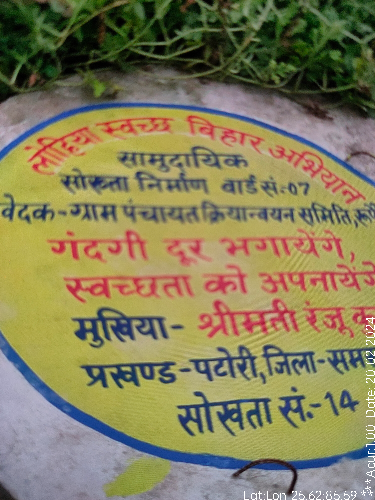 लोहिया स्वच्छ बिहार अभियान
सामुदायिक
सोख्ता निर्माण वार्ड सं:-07
वेदक-ग्राम पंचायत क्रियान्वयन समिति,
गंदगी दूर भगायेंगे,
स्वच्छता को अपनायेंगे
मुखिया- श्रीमती रंजू
प्रखण्ड-पटोरी,जिला-सम
सोखता सं.-14
Lat:Lon 25.62:85.59 ***Acur:100 Date: 20 02 2024